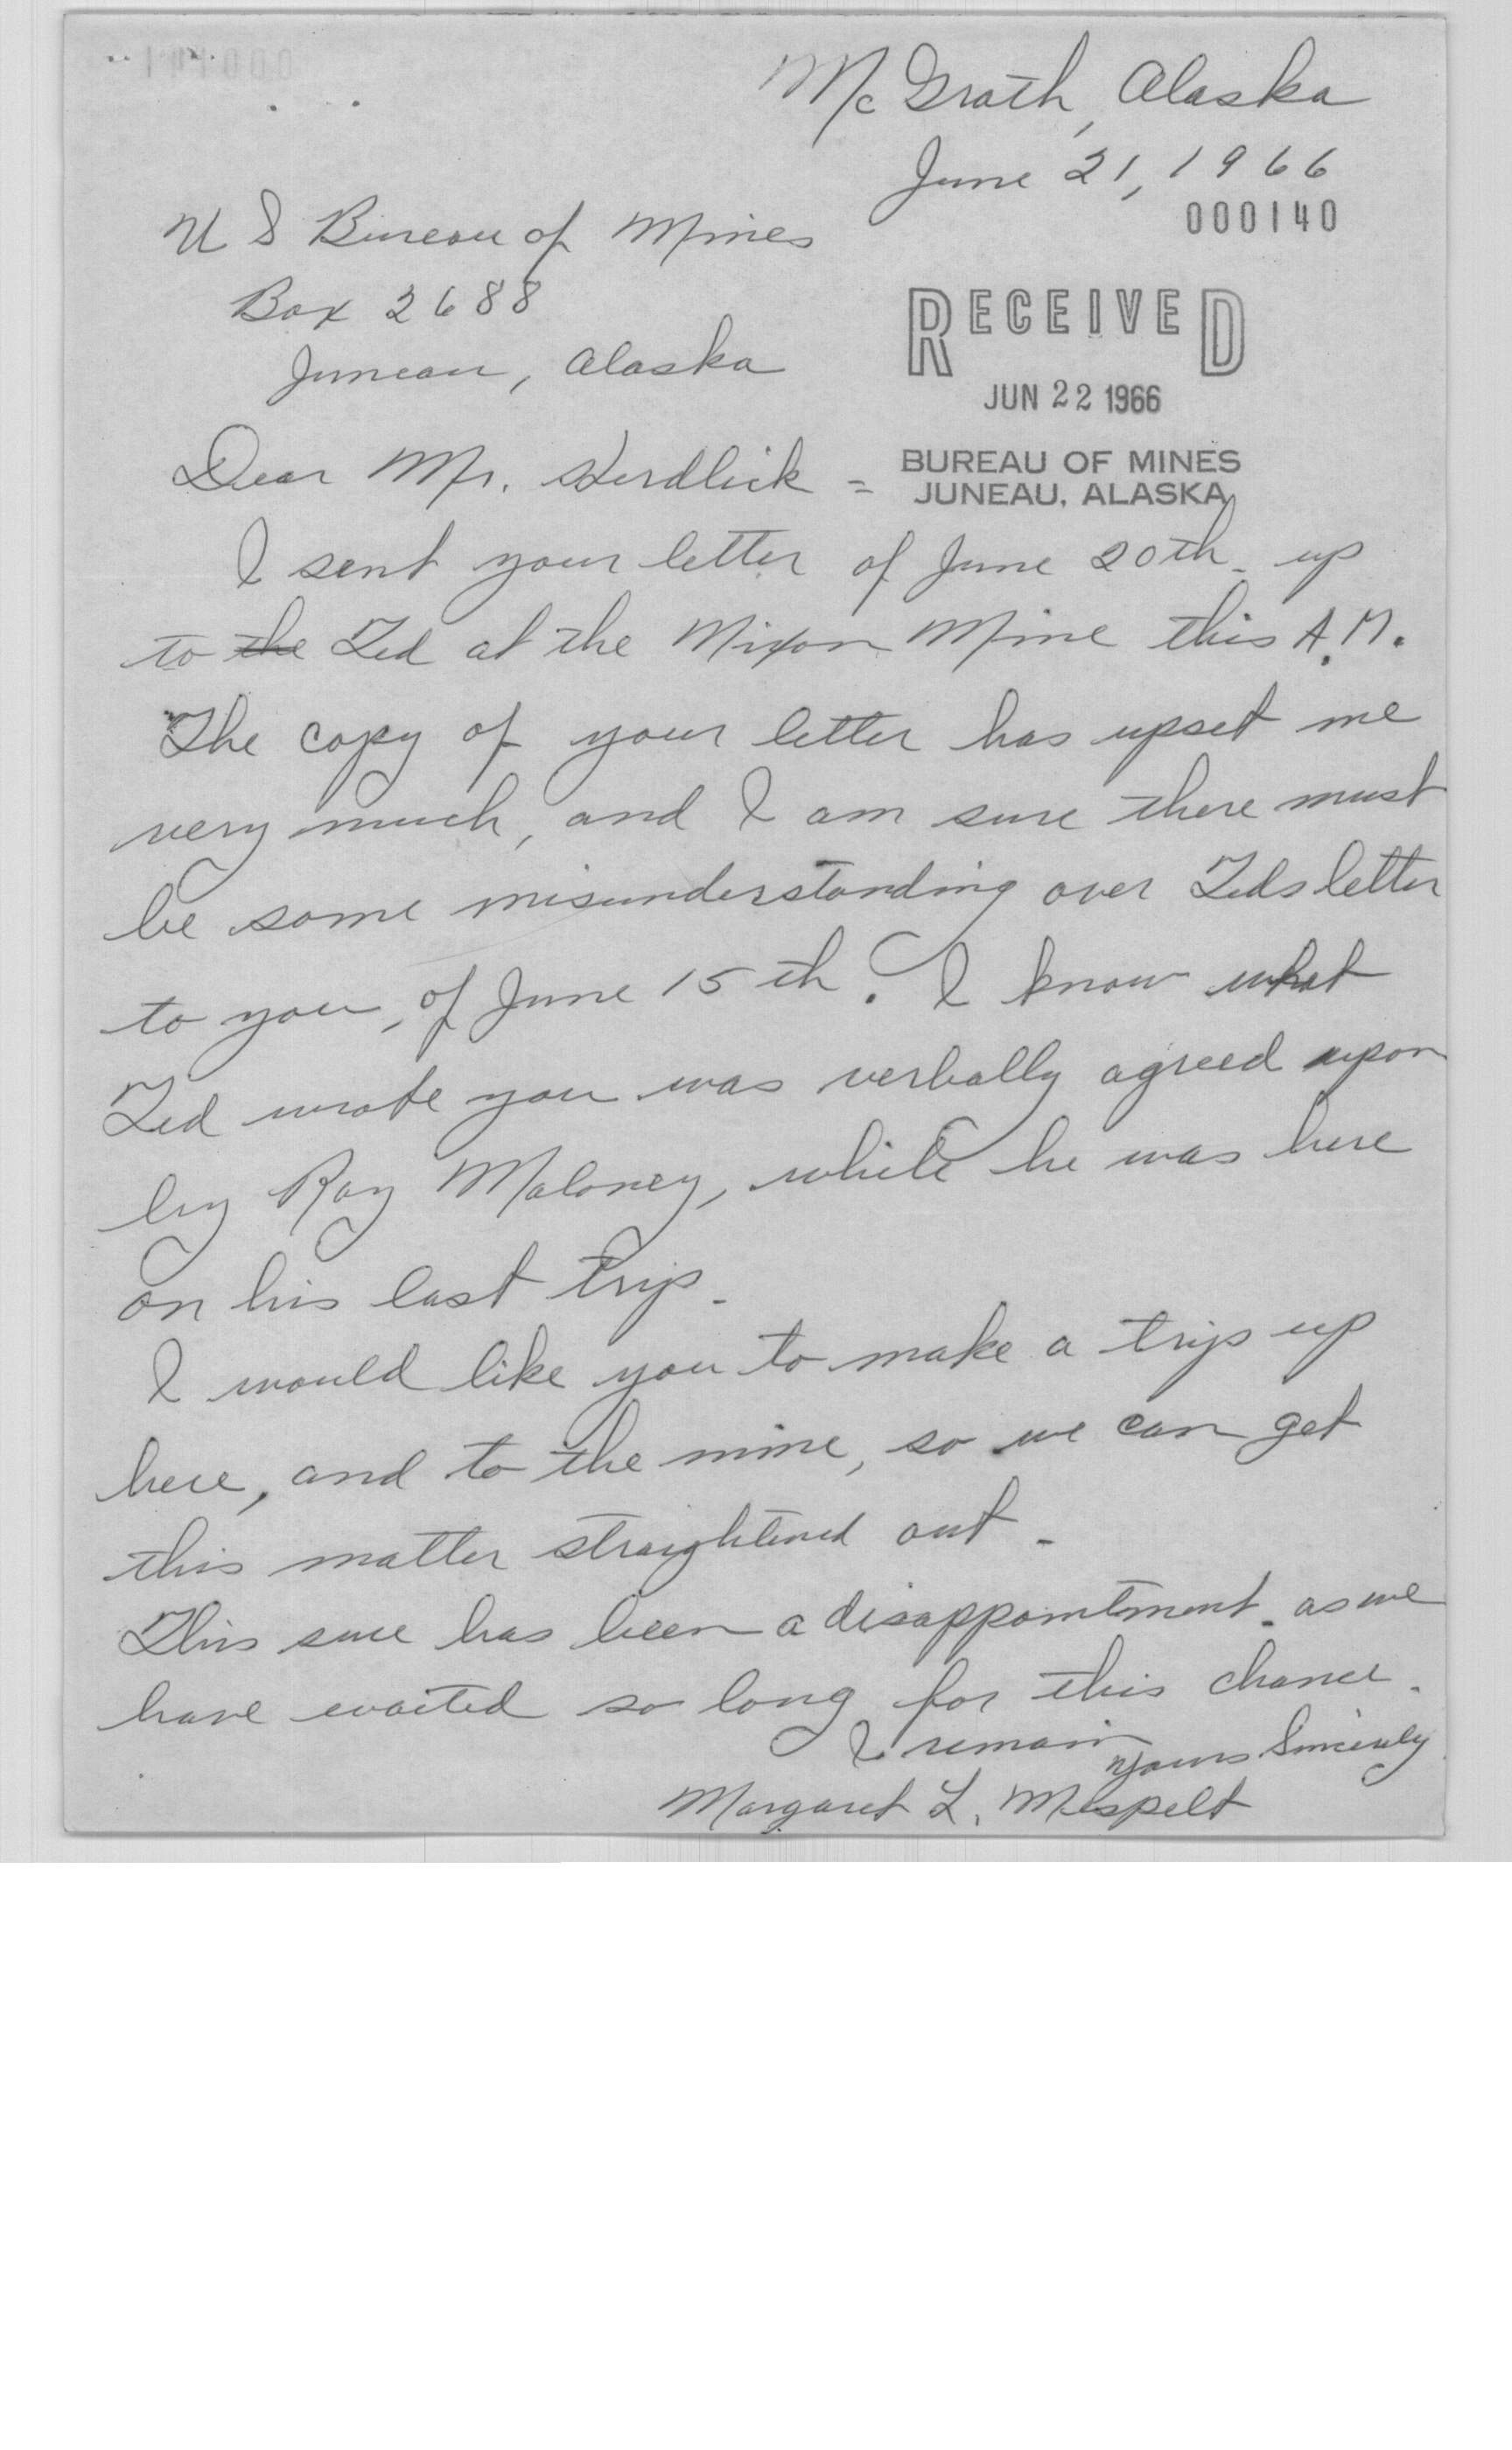 Mc Grath, Alaska
June 21, 1966
000140
U S Bureau of Mines
Box 2688
Juneau, Alaska
RECEIVED
JUN 22 1966
BUREAU OF MINES
JUNEAU, ALASKA
Dear Mr. Herdlick =
I sent your letter of June 20th - up
to the Ted at the Nixon Mine this A.M.
The copy of your letter has upset me
very much, and I am sure there must
be some misunderstanding over Teds letter
to you, of June 15th. I know what
Ted wrote you was verbally agreed upon
by Ray Maloney, while he was here
on his last trip -
I would like you to make a trip up
here, and to the mine, so we can get
this matter straightened out -
This sure has been a disappointment - as we
have waited so long for this chance.
I remain
Yours Sincerely
Margaret L. Mespelt